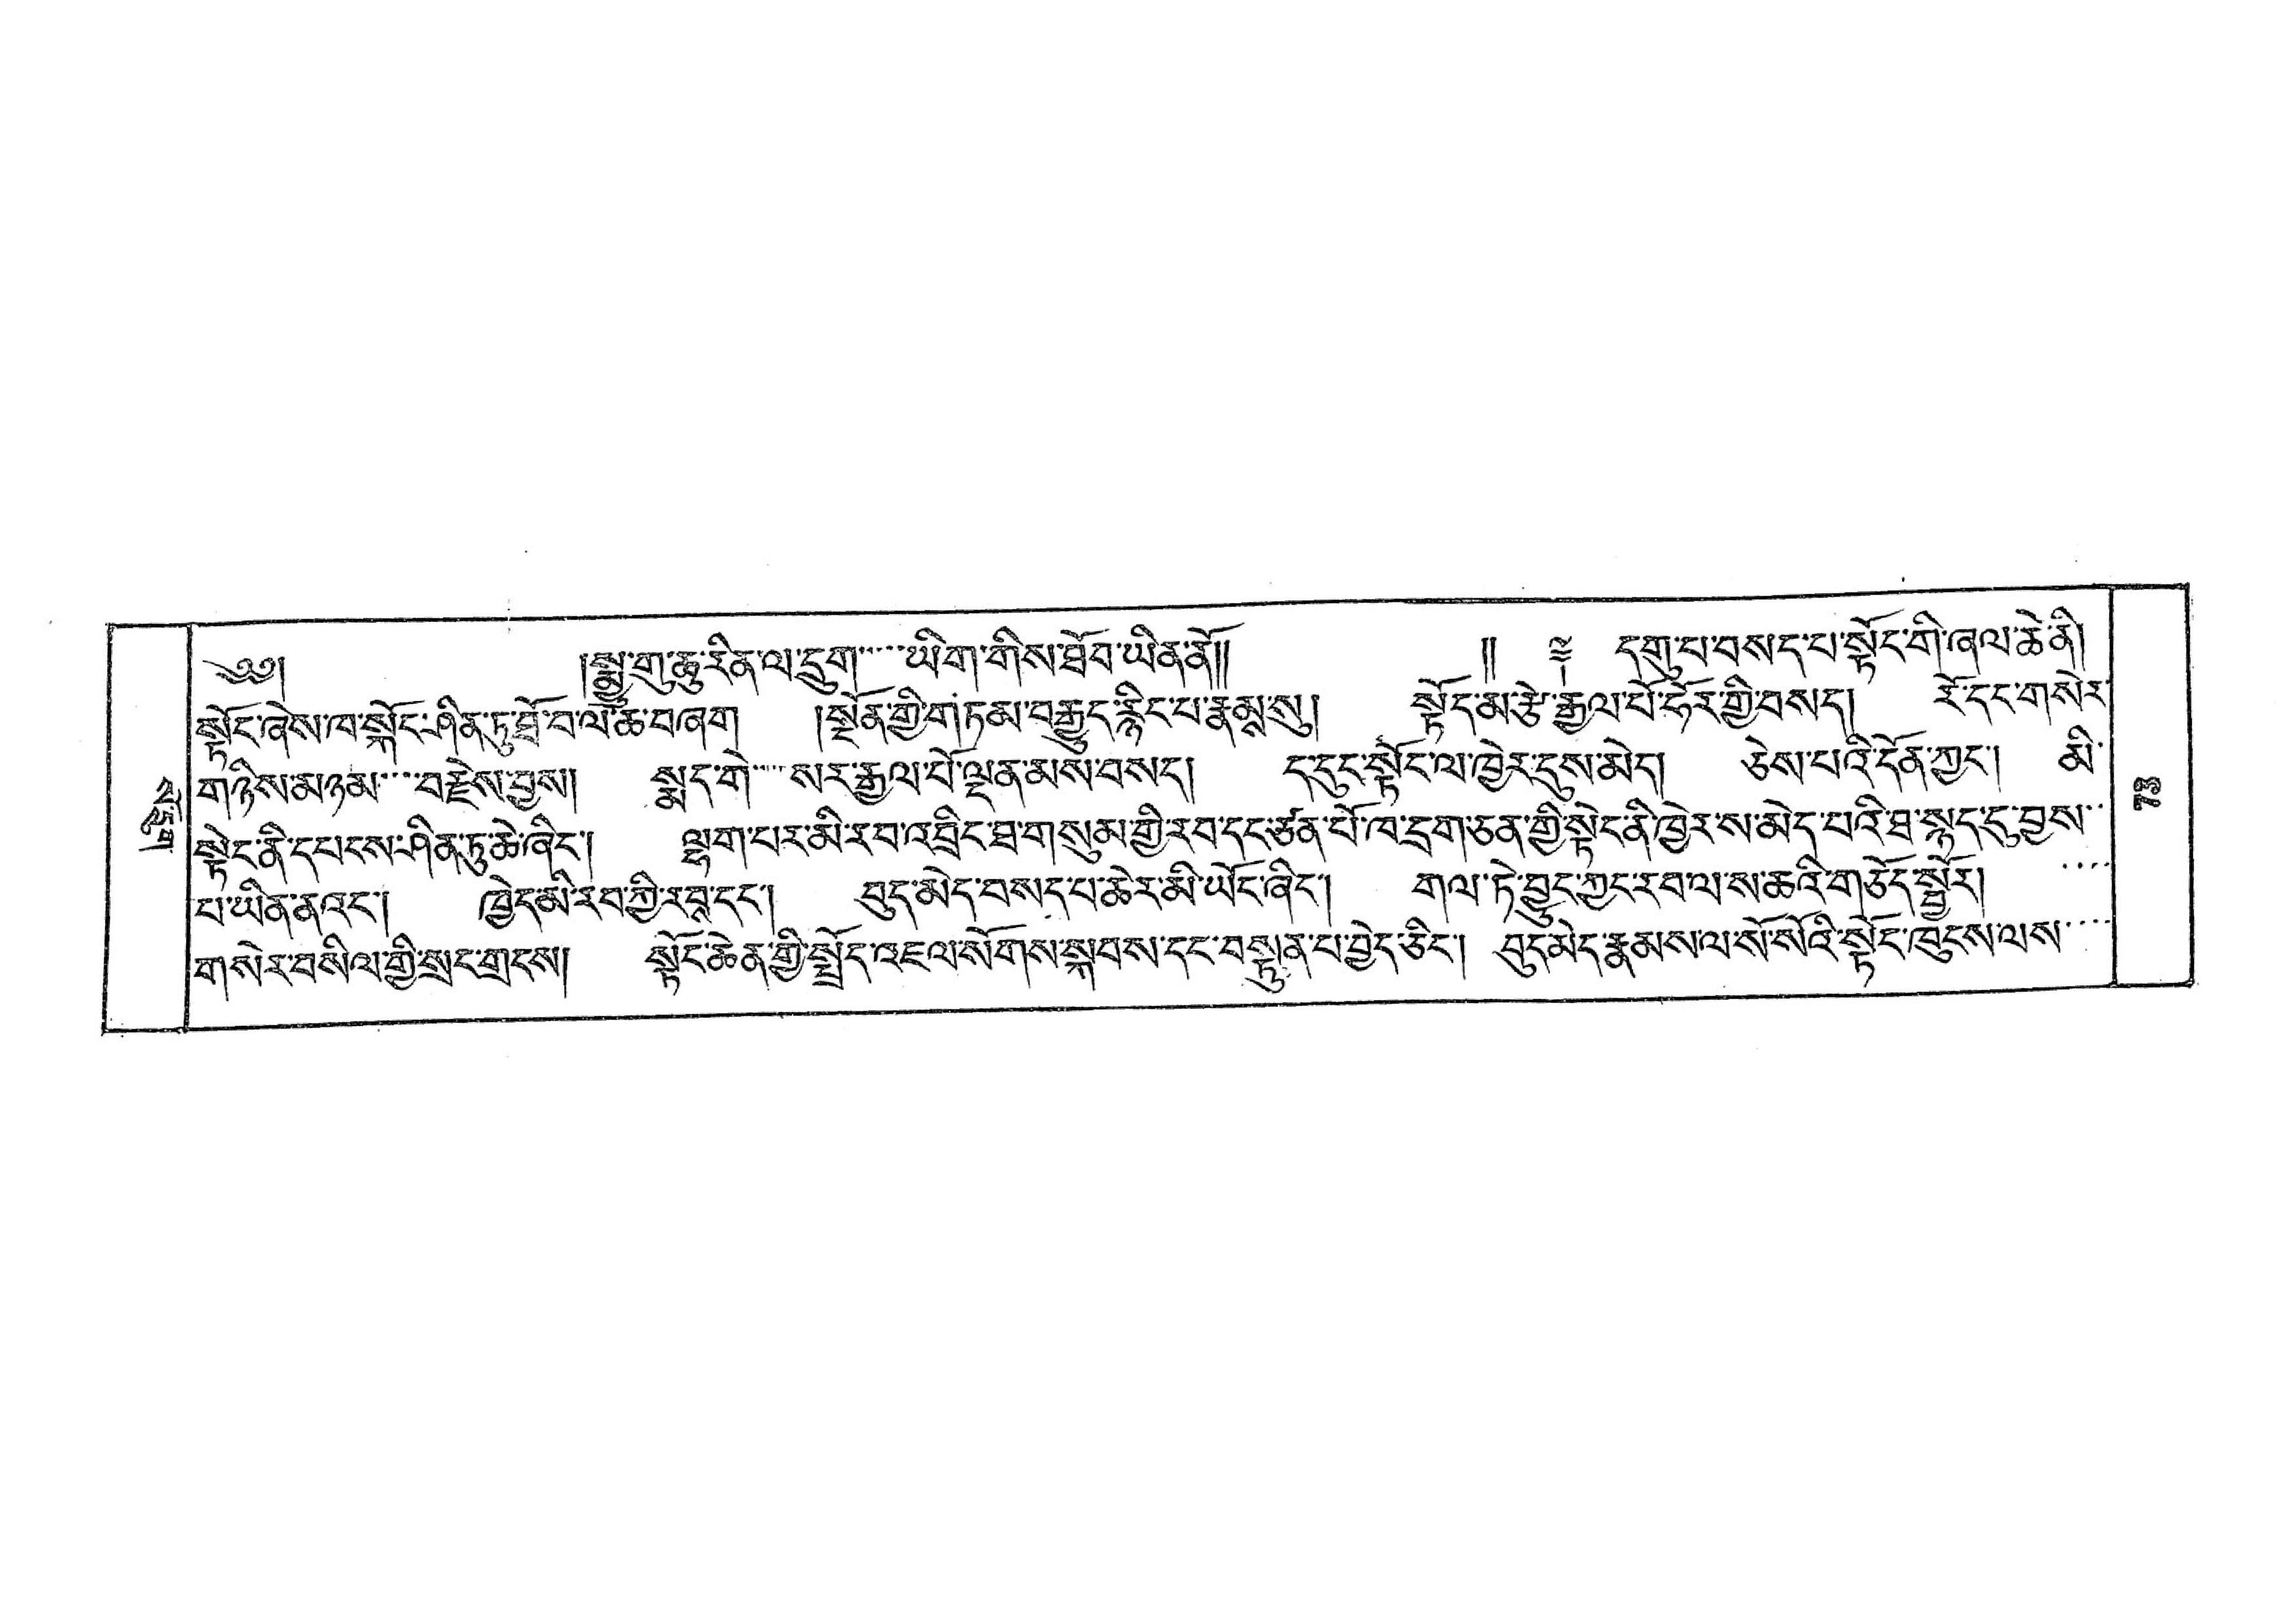 ༄༅། །སྨྱུ་གུ་ཆུ་རིན་ལ་དྲུག་ ་ ་ ་ཡིག་གིས་ཐོབ་ཡིན་ནོ།། །། ༈ དགུ་པ་བསད་པ་སྟོང་གི་ཞལ་ཆེ་ནི།
སྟོང་ཞེས་ཁ་སྐོང་ཤིན་ཏུ་ཐྲོ་བ་ལ་ཆ་བཞག །སྔོན་གྱི་གཏམ་བརྒྱུད་རྙིང་པ་རྣམས་སུ། སྟོད་མ་རྩེ་རྒྱལ་པོ་ཧོར་གྱི་བསད། རོ་དང་གསེར་
གཉིས་མཉམ་ ་ ་བརྗེས་བྱས། སྨད་གེ་ ་ ་སར་རྒྱལ་པོ་ལྡན་མས་བསད། ད་དུང་སྟོང་ལ་ཁྱེར་དུས་མེད། ཅེས་པའི་དོན་ཀྱང་། མི་
སྟེང་ནི་དཔངས་ཤིན་ཏུ་ཆེ་ཞིང་། ལྷག་པར་མི་རབ་འབྲིང་ཐ་གསུམ་གྱི་རབ་དང་ཙན་པོ་ཁ་དྲག་ཅན་གྱི་སྟེང་ནི་ཁྱེར་ས་མེད་པའི་ཐ་སྙད་དུ་བྱས་ ་
པ་ཡིན་ནའང་། ཁྱེད་མི་རབ་ཀྱི་རབ་དང་། བུད་མེད་བསད་པ་ཆེར་མི་ཡོང་ཞིང་། གལ་ཏེ་བྱུང་ཀྱང་རབ་ལ་ས་ཆའི་གཅོད་སྦྱོར། ་ ་ ་ ་
གསེར་བསིལ་གྱི་སྲང་གྲངས། སྟོང་ཆེན་གྱི་སྤྲོད་འཇལ་སོགས་སྐབས་དང་བསྟུན་པ་བྱེད་ཅིང་། བུད་མེད་རྣམས་ལ་སོ་སོའི་སྟོང་ཁུངས་ལས་ ་ ་ ་